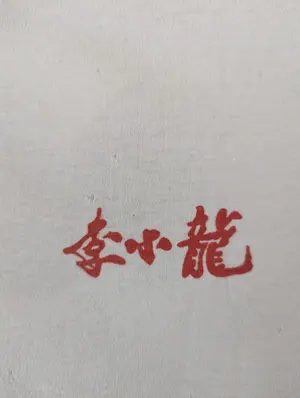 李小龍